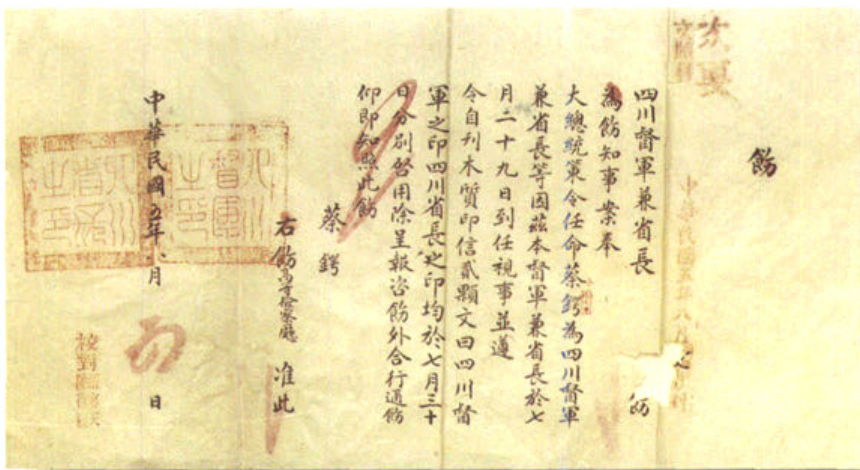 飭
四川督軍兼省長 飭
為飭知事案奉
大總統策令任命蔡鍔為四川督軍
兼省長等因茲本督軍兼省長於七
月二十九日到任視事並遵
令自刊木質印信貳顆文曰四川督
軍之印四川省長之印均於七月三十
日分別啓用除呈報咨飭外合行通飭
仰即知照此飭
蔡鍔
右飭高等檢察廳 准此
中華民國五年八月 日
四川督軍之印
四川省長之印